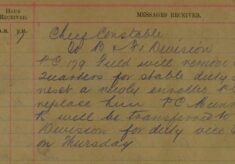 HOUR
RECEIVED.
MESSAGES RECEIVED.
A.M.
P.M.
Chief Constable
to B & F Division
P.C 179 Field will remove
Quarters for stable duty
replace him P.C.
will be transferred to
Division for duty vice
on Thursday